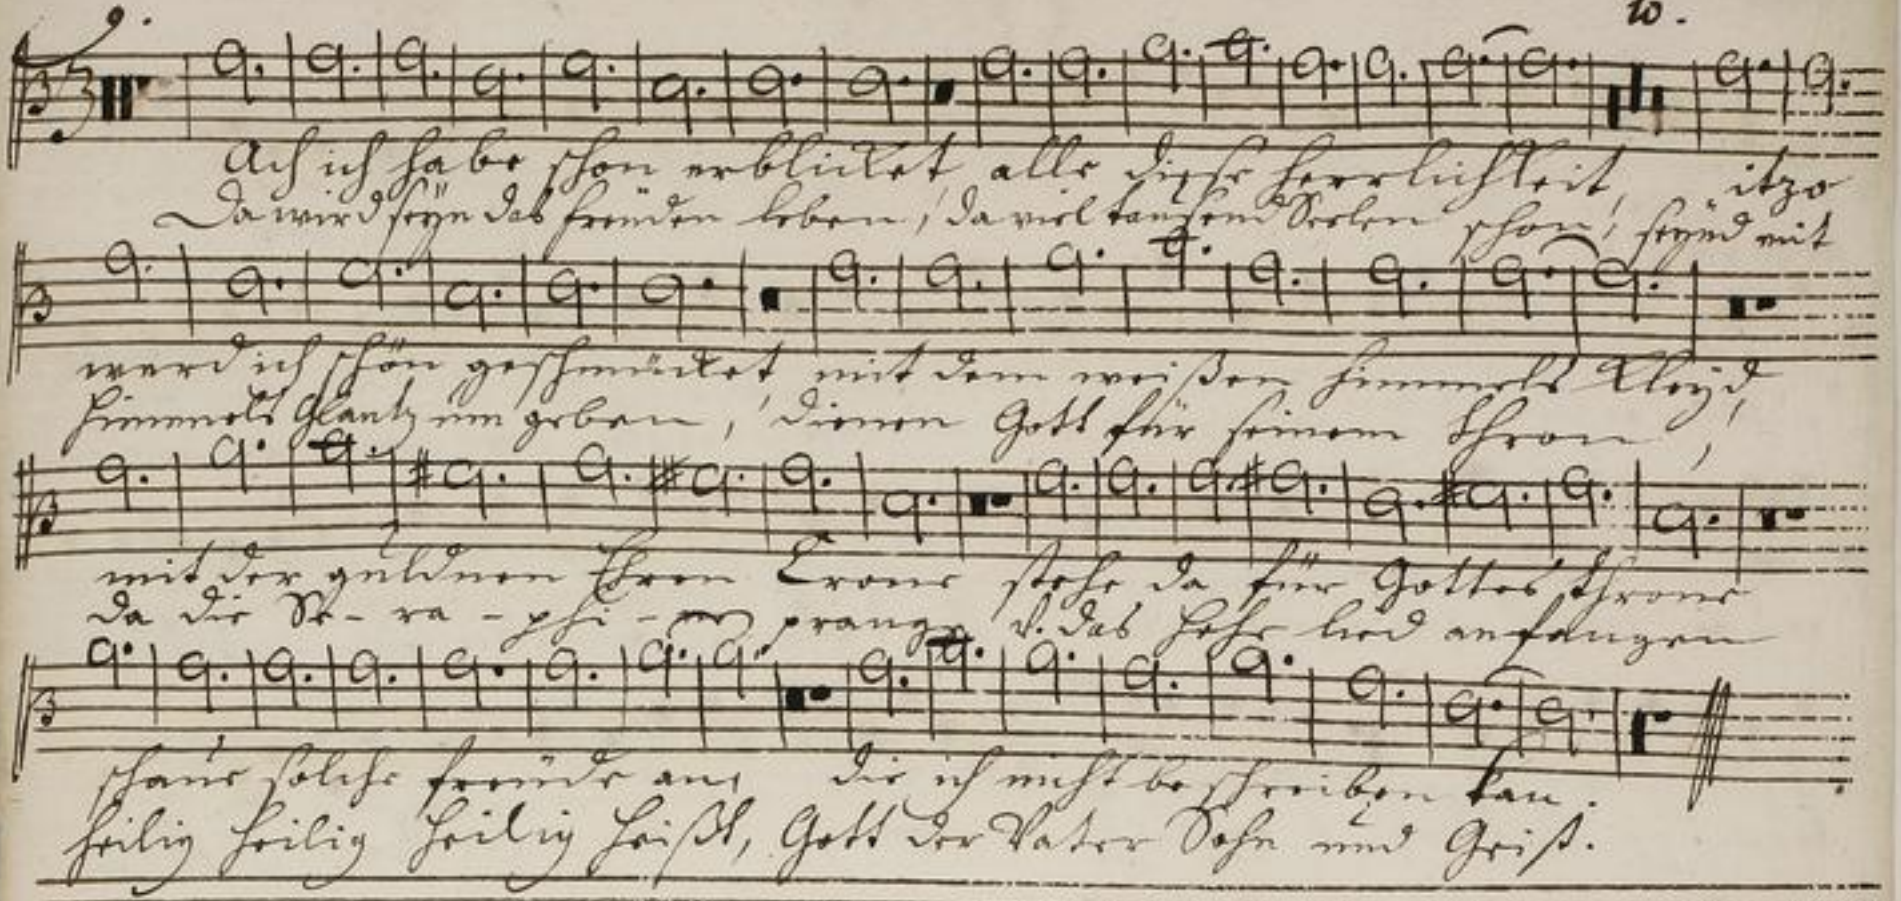 9. 10.
Ach ich habe schon erblicket alle diese Herrlichkeit, itzo
Da wird seyn das freuden leben, da viel tausend Seelen schon, seynd mit
werd ich schön geschmücket mit dem weißen Himmels Kleyd,
Himmels Glantz um geben, dienen Gott für seinem Thron,
mit der güldnen Ehren Crone stehe da für Gottes Throne
da die Se-ra-phi-nen prangen v. das hohe lied anfangen
schaue solche freude an, die ich nicht beschreiben kan.
heilig heilig heilig heißt, Gott der Vater Sohn und Geist.